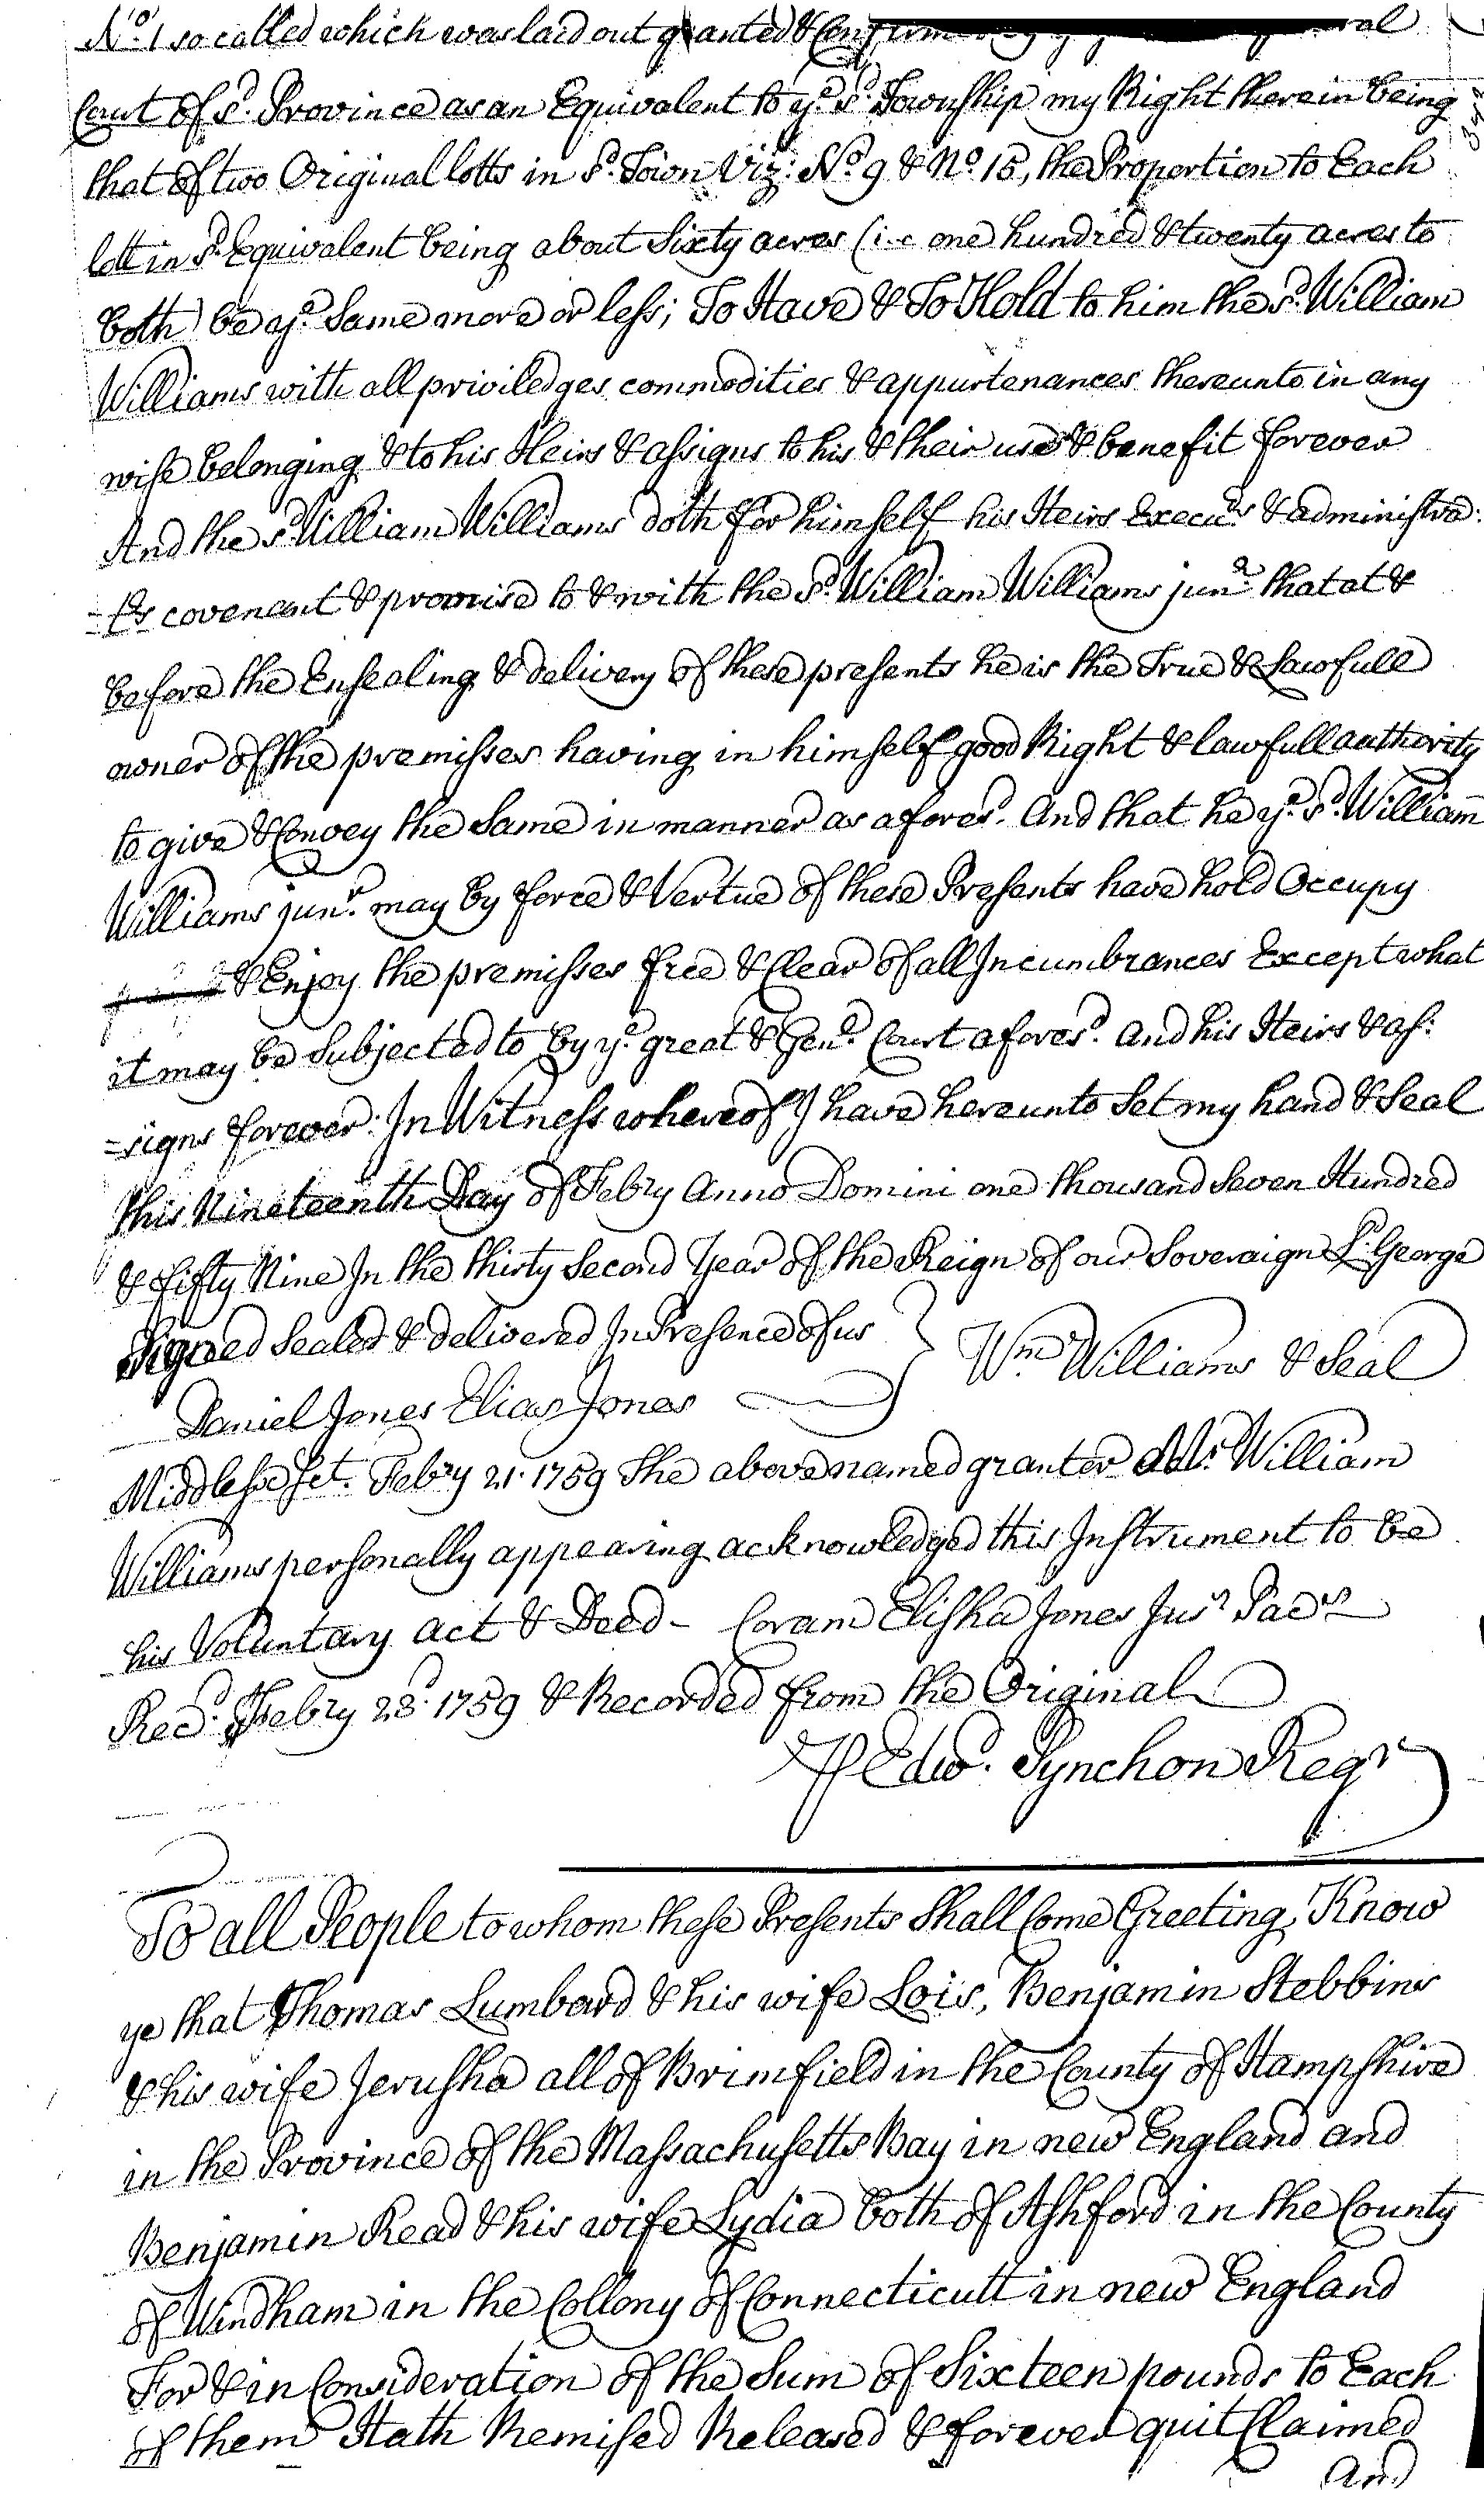 No. 1 so called which was laid out granted & Confirm
Court of sd. Province as an Equivalent to ye. sd. Township my Right therein being
that of two Original lotts in sd. Town Viz: No. 9 & No. 15, the Proportion to Each
lott in sd. Equivalent being about Sixty acres (i.e one hundred & twenty acres to
both) be ye. Same more or less; To Have & To Hold to him the sd. William
Williams with all priviledges commodities & appurtenances thereunto in any
wise belonging & to his Heirs & assigns to his & their use & benefit forever
And the sd. William Williams doth for himself his Heirs Execurs & administra:
-trs covenant & promise to & with the sd. William Williams junr. that at &
before the Ensealing & delivery of these presents he is the True & Lawfull
owner of the premisses having in himself good Right & lawfull authority
to give & Convey the Same in manner as afores'd. And that he ye. sd. William
Williams junr. may by force & Vertue of these Presents have hold Occupy
& Enjoy the premisses free & Clear of all Incumbrances Except what
it may be Subjected to by ye. great & Gen'l. Court afores'd. And his Heirs & as:
-signs forever. In Witness whereof I have hereunto Set my hand & Seal
this Nineteenth Day of Febry Anno Domini one thousand Seven Hundred
& fifty Nine In the thirty Second Year of the Reign of our Soveraign Ld. George
Signed Sealed & delivered In Presence of us } Wm. Williams & Seal
Daniel Jones Elias Jones
Middlesex sct. Febry 21. 1759 The above named granter Mr. William
Williams personally appearing acknowledged this Instrument to be
his Voluntary act & Deed - Coram Elisha Jones Jusr Pacis
Recd. Febry 23d. 1759 & Recorded from the Original
P Edwd. Pynchon Regr
To all People to whom these Presents Shall Come Greeting, Know
ye that Thomas Lumbard & his wife Lois, Benjamin Stebbins
& his wife Jerusha all of Brimfield in the County of Hampshire
in the Province of the Massachusetts Bay in new England and
Benjamin Read & his wife Lydia both of Ashford in the County
of Windham in the Collony of Connecticutt in new England
For & in Consideration of the Sum of Sixteen pounds to Each
of them Hath Remised Released & forever quit Claimed
And